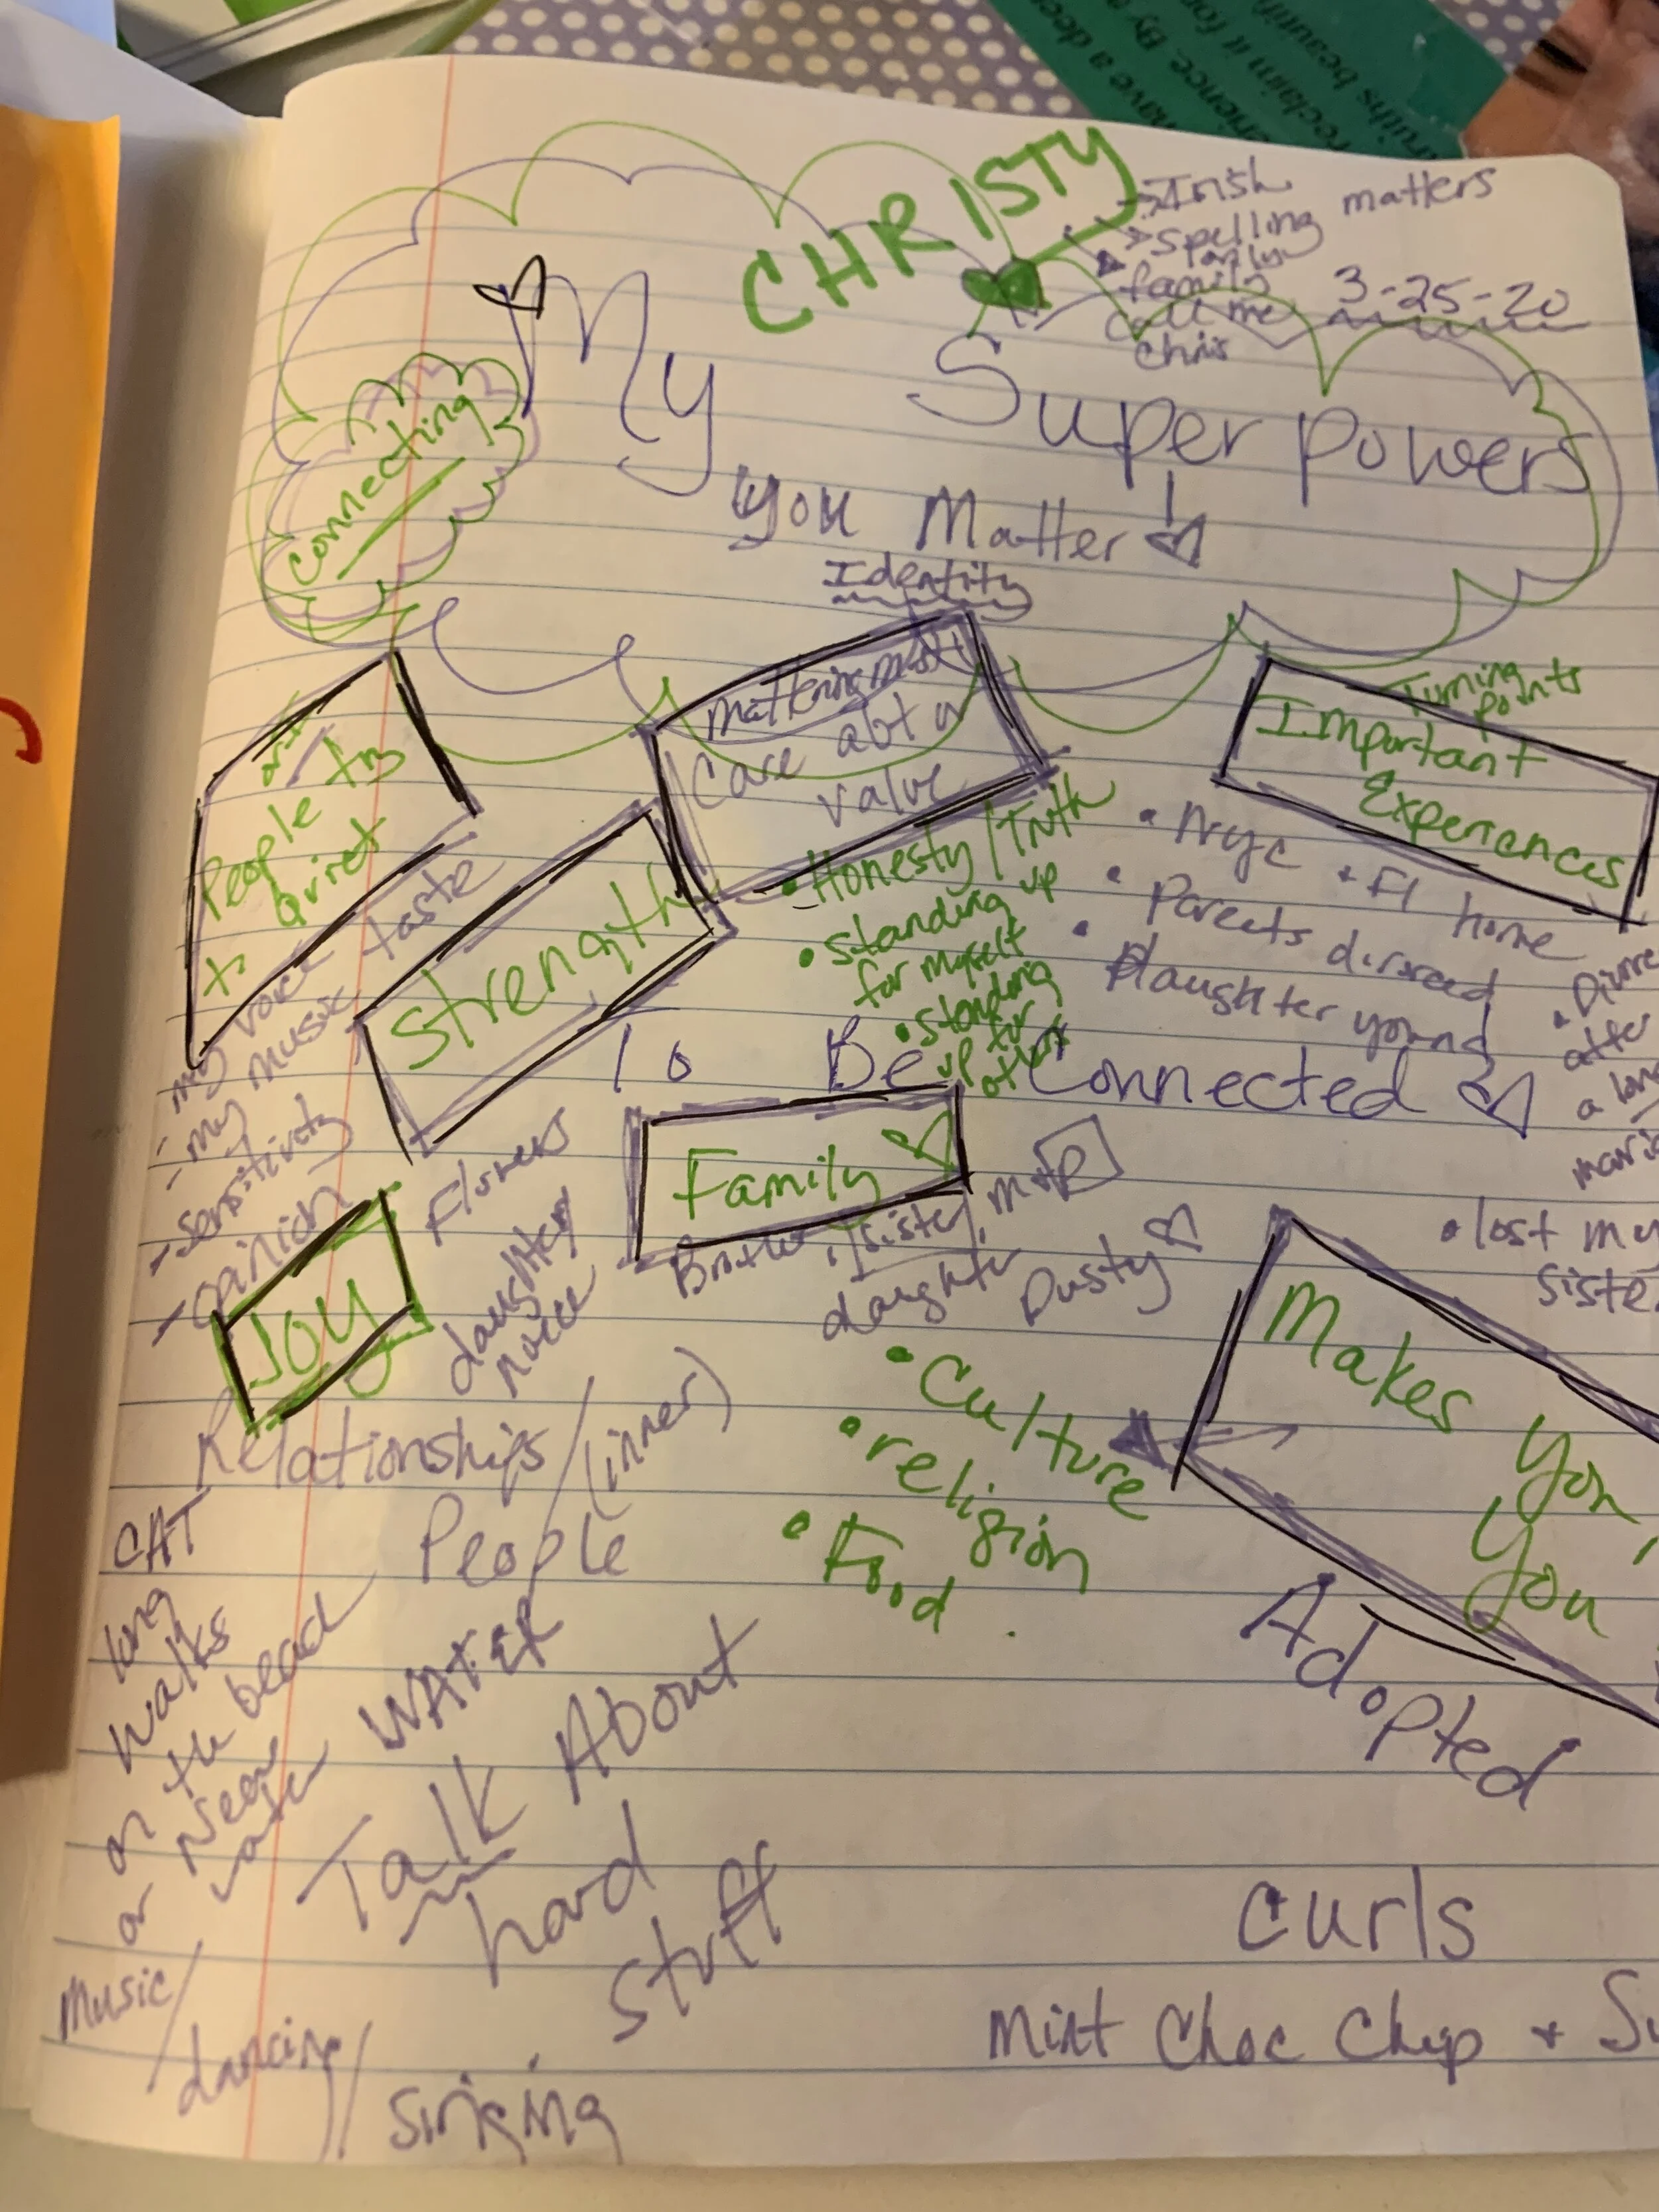 have a deep
reclaim it for
CHRISTY
Irish
Spelling matters
only
family
call me
Chris
3-25-20
My Super Powers
Connecting
you Matter!
Identity
mattering most
Care abt
value
Turning
points
Important
Experiences
People try
to quiet
my voice
taste
- my music
- Sensitivity
- opinion
Strength
• Honesty/Truth
• Standing up
for myself
• standing
up for
others
• NYC + Fl home
• Parents divorced
• Daughter young
• Divorce
after
a long
• lost my
siste
To Be Connected
Family
Brother, sister, m+P
daughter
Dusty
Joy
Flowers
daughter
voice
Relationships/
People
(inner)
CAT
long
walks
on the beach
or near
water
WATER
Talk About
hard
stuff
Music/
dancing/
singing
Makes
You
You
• Culture
• religion
• Food
Adopted
curls
Mint Choc Chip + Su